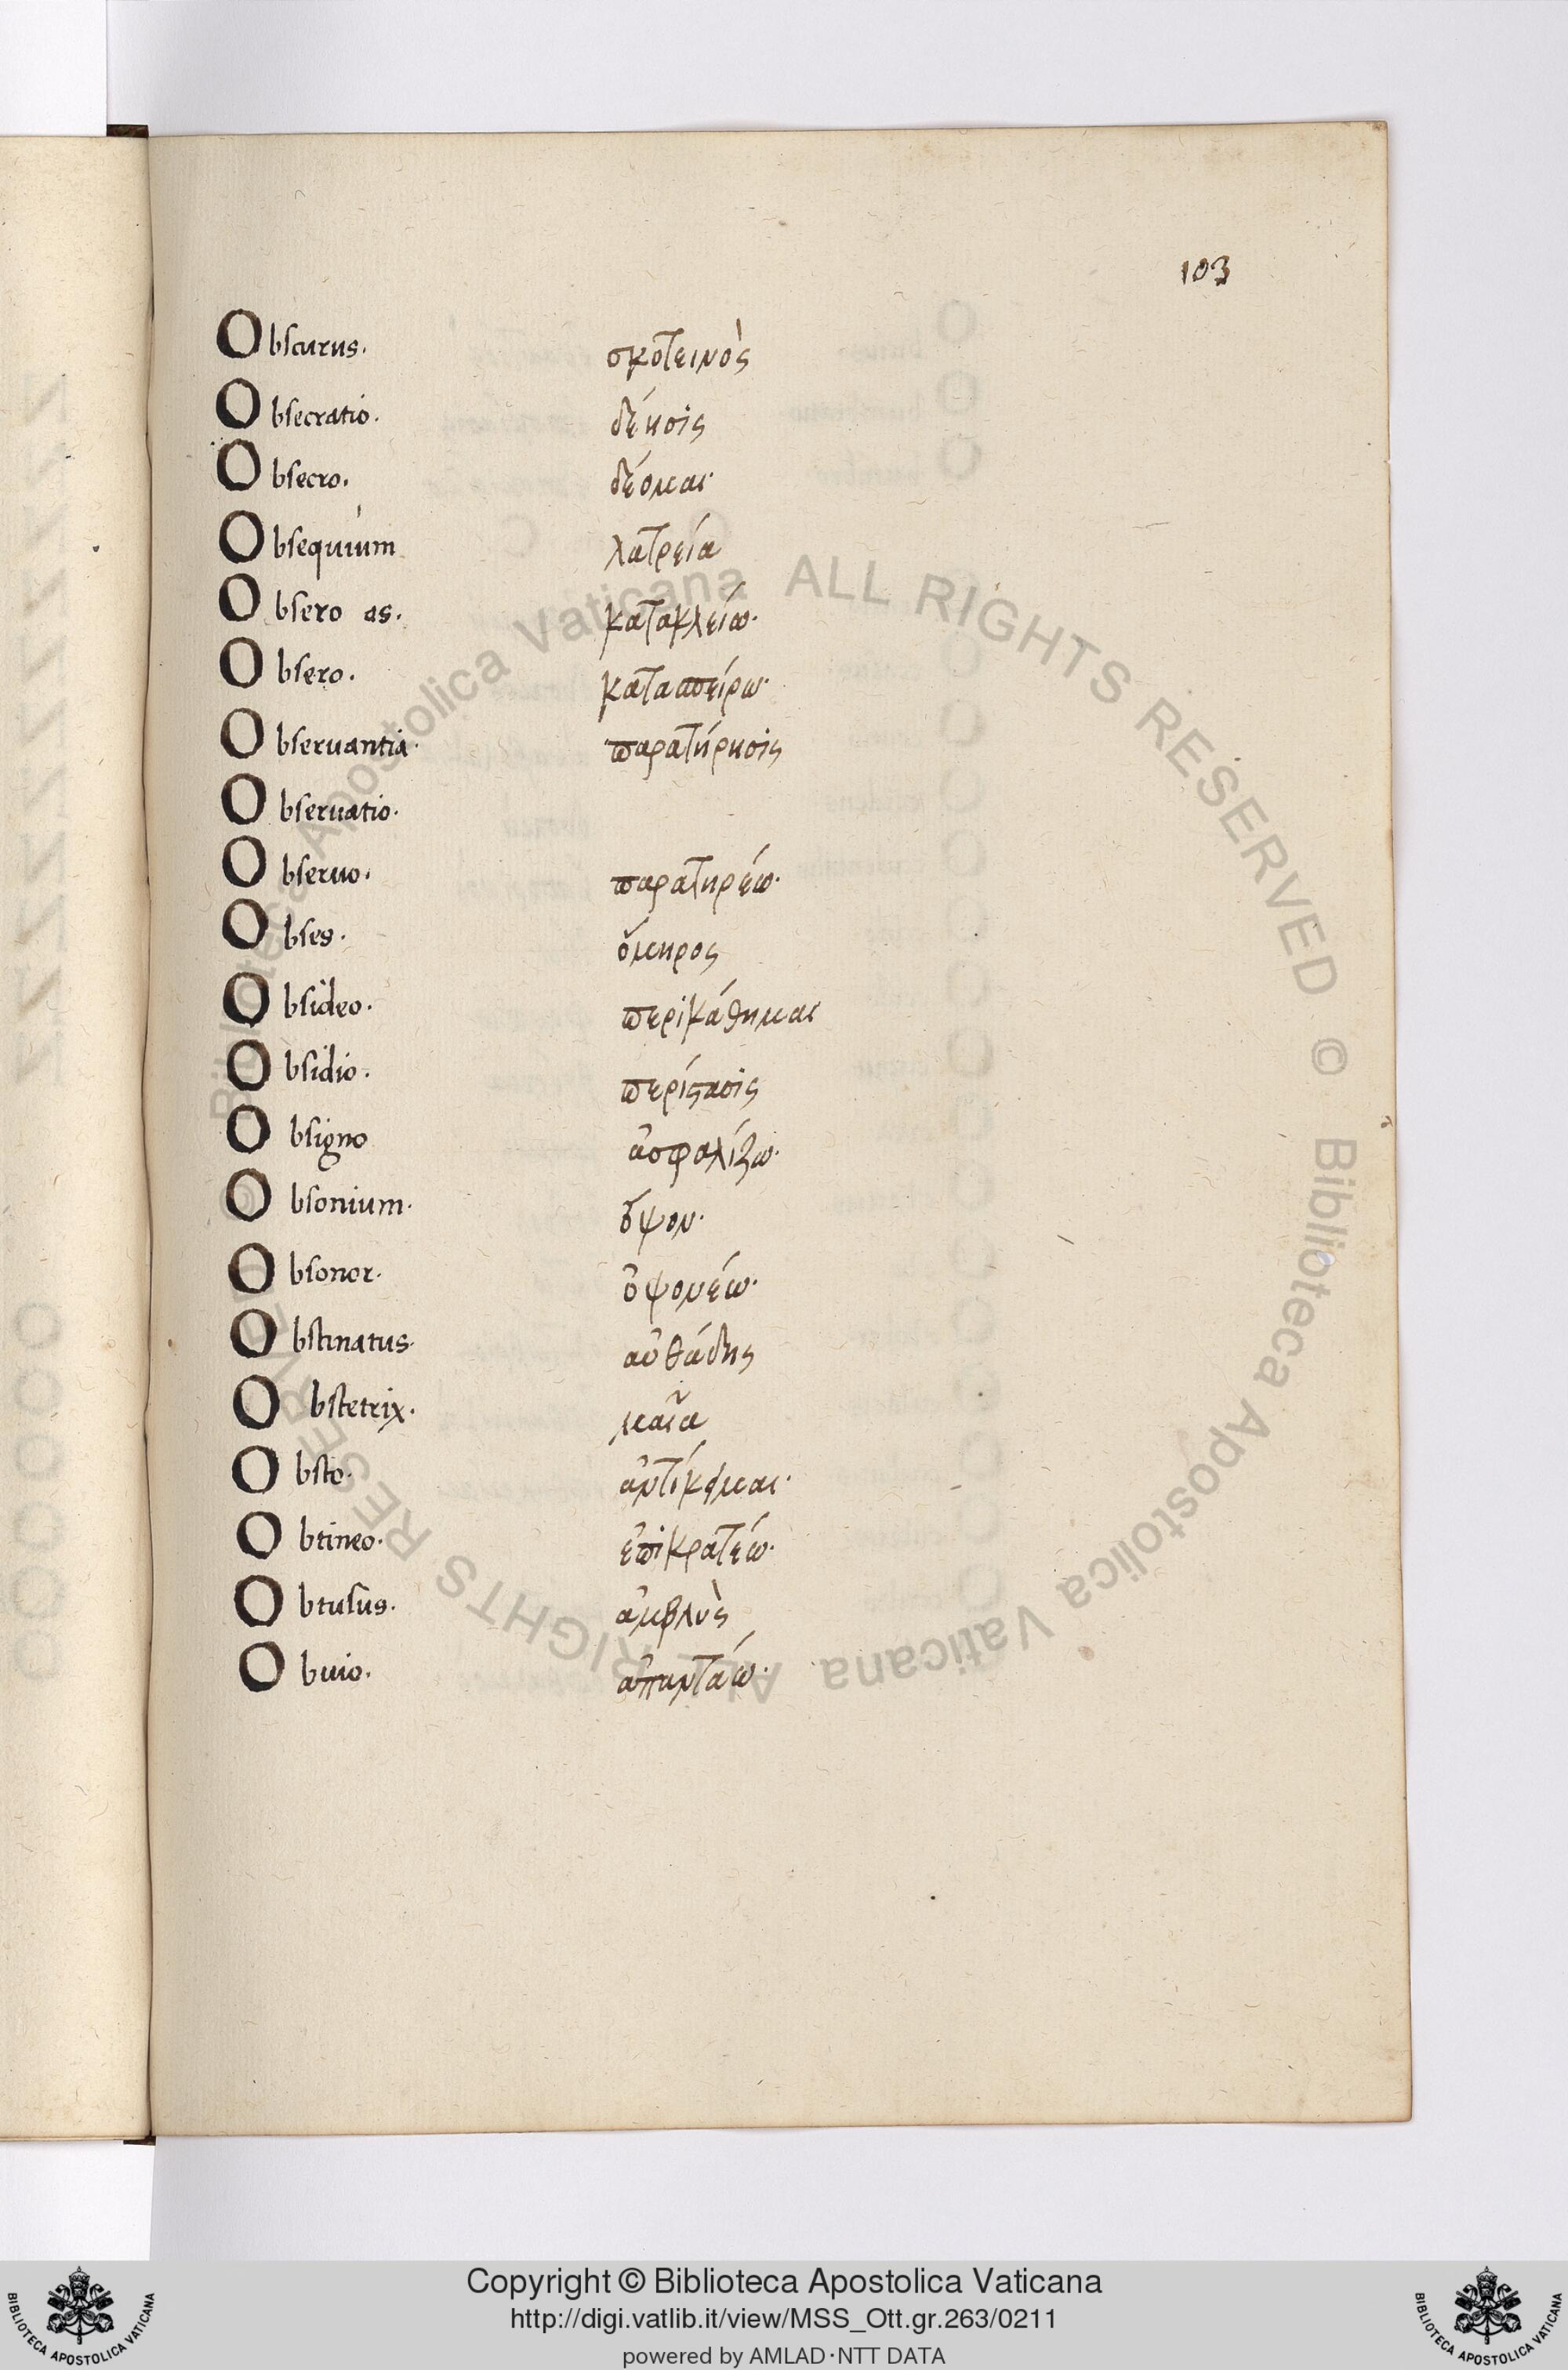 103
Obscurus. σκοτεινὸς
Obsecratio. δέησις
Obsecro. δέομαι
Obsequium λατρεία
Obsero as. κατακλείω.
Obsero. κατασπείρω.
Obseruantia. παρατήρησις
Obseruatio.
Obseruo. παρατηρέω.
Obses. ὅμηρος
Obsideo. περικάθημαι
Obsidio. περίστασις
Obsigno ἀσφαλίζω.
Obsonium. ὄψον.
Obsonor. ὀψονέω.
Obstinatus. αὐθάδης
Obstetrix. μαῖα
Obsto. ἀντίκειμαι.
Obtineo. ἐπικρατέω.
Obtusus. ἀμβλὺς
Obuio. ἀπαντάω.
Biblioteca Apostolica Vaticana ALL RIGHTS RESERVED © Biblioteca Apostolica Vaticana ALL RIGHTS RESERVED ©
Copyright © Biblioteca Apostolica Vaticana
http://digi.vatlib.it/view/MSS_Ott.gr.263/0211
powered by AMLAD·NTT DATA
BIBLIOTECA APOSTOLICA VATICANA
BIBLIOTECA APOSTOLICA VATICANA